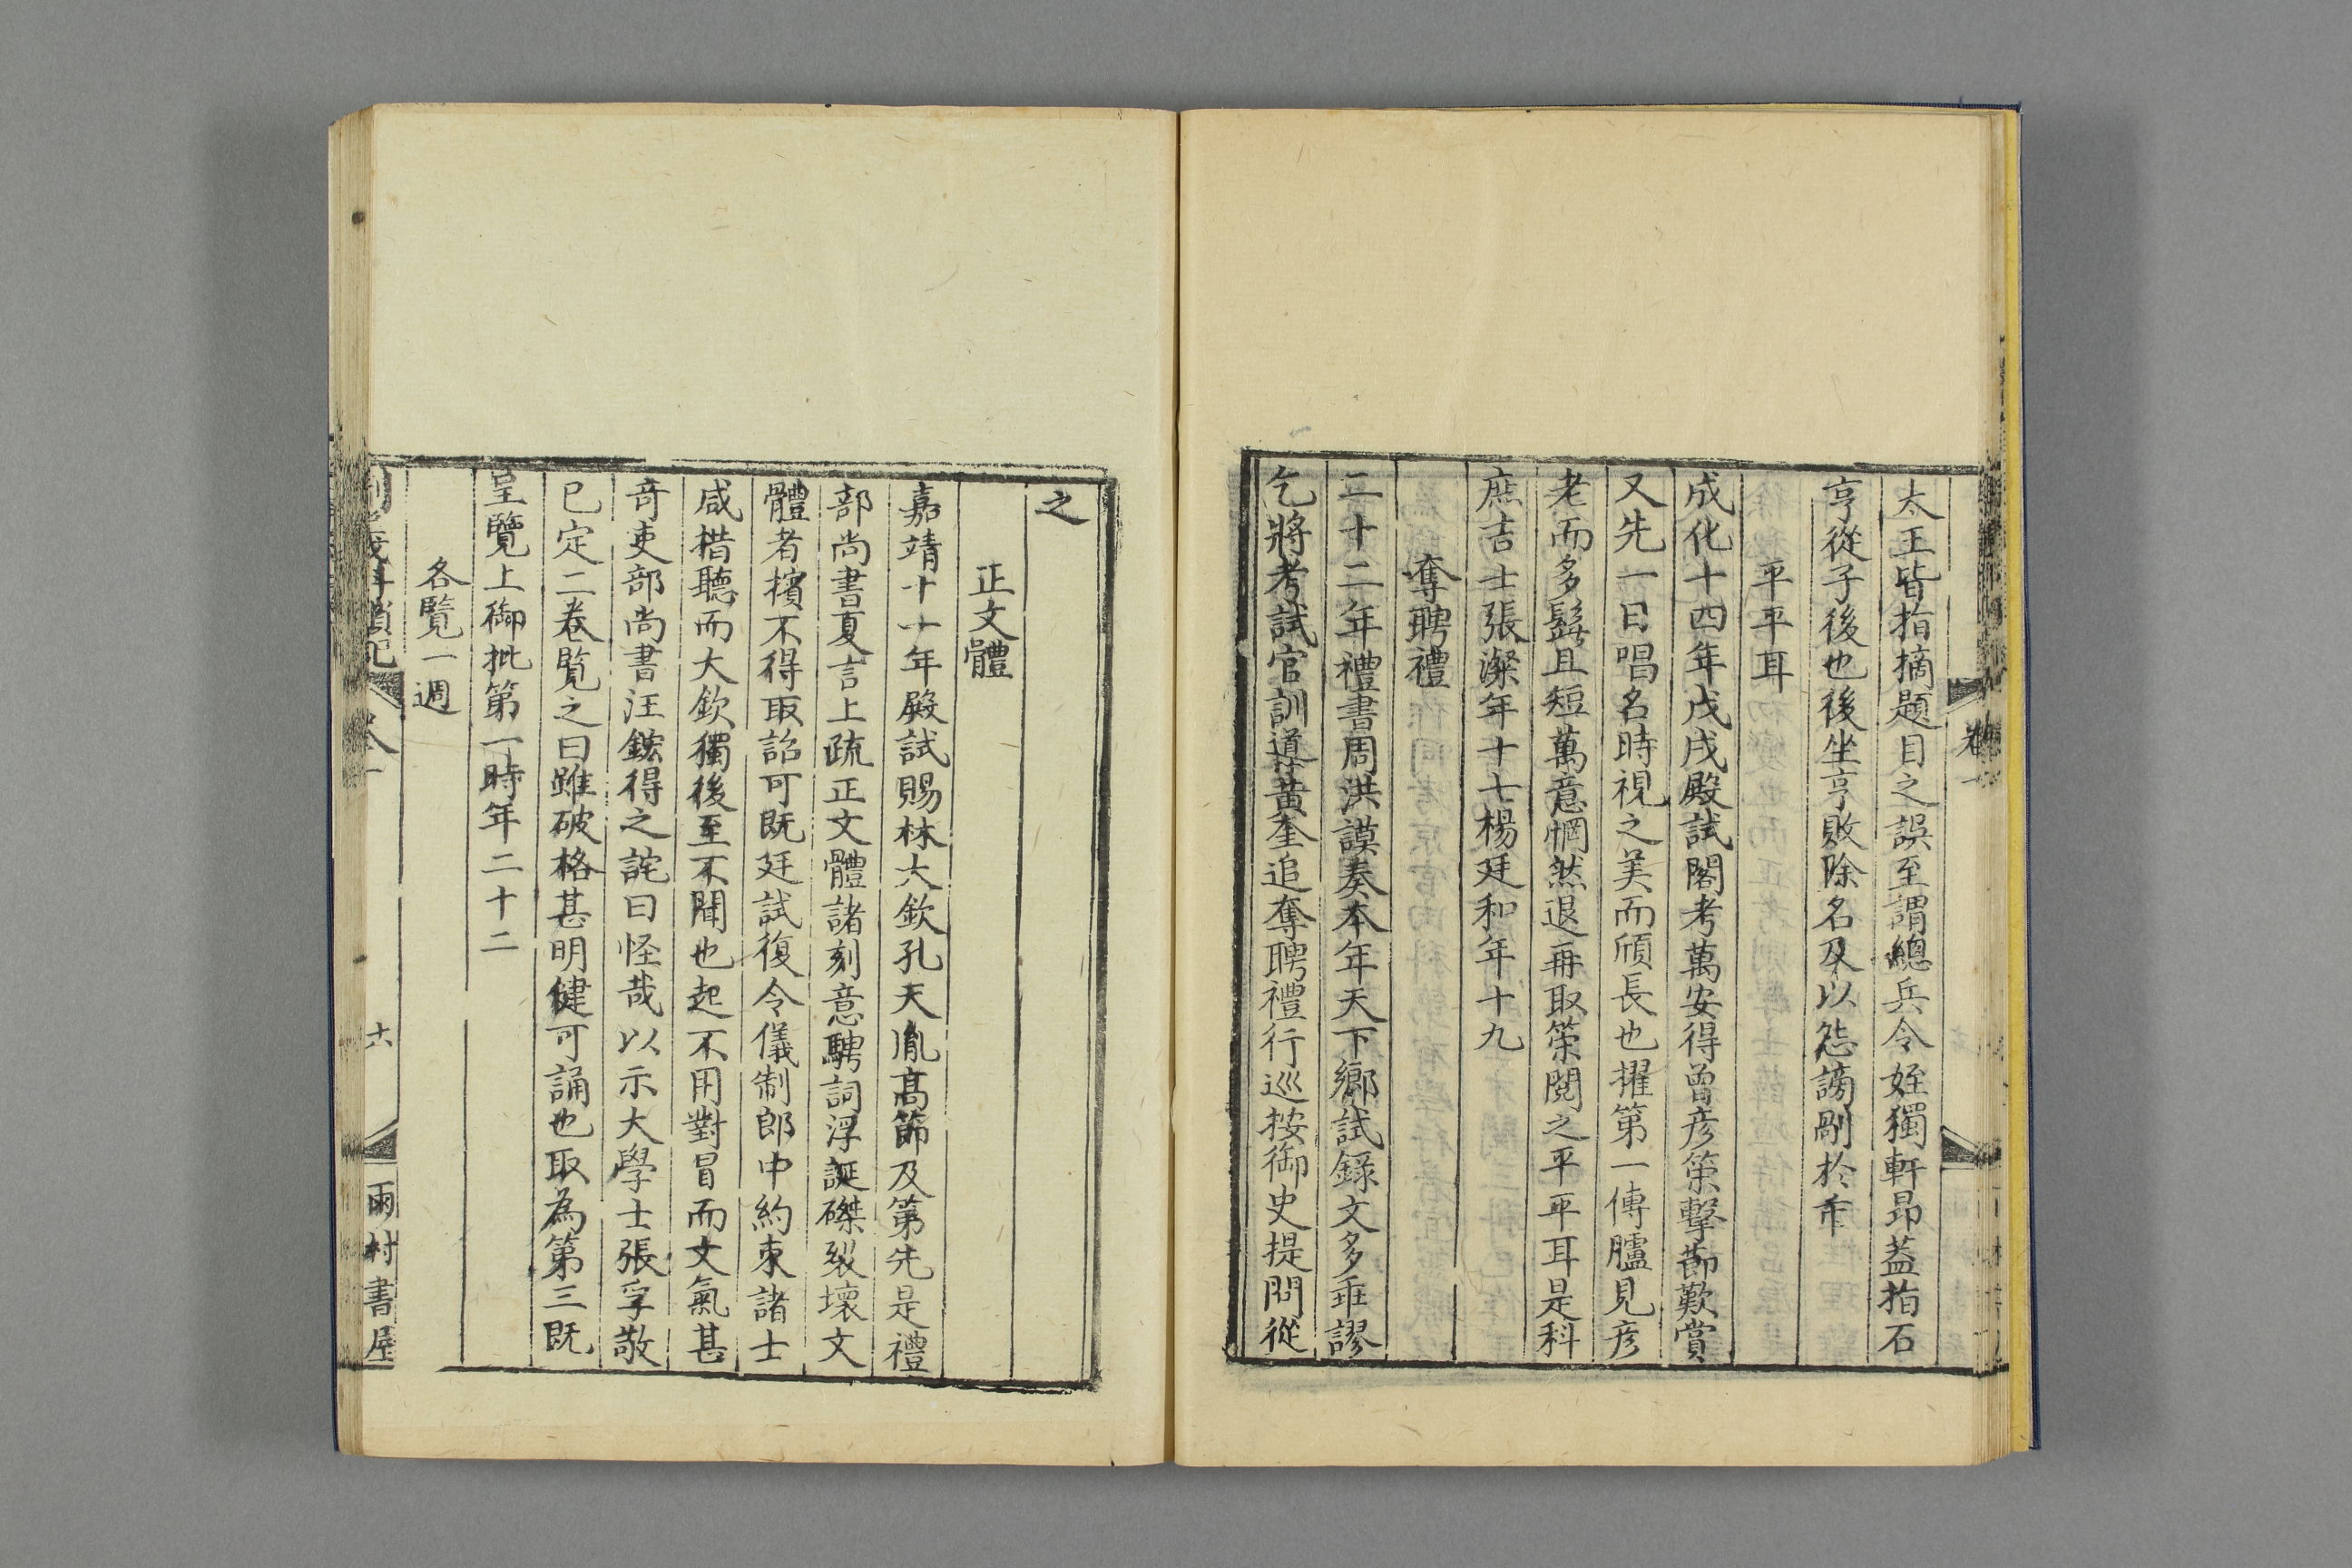 太王皆指摘題目之誤至謂總兵令姪獨軒昻葢指石
亨從子後也後坐亨敗除名及以怨謗剮於市
平平耳
成化十四年戊戌殿試閣考萬安得曾彦策擊節歎賞
又先一日唱名時視之美而頎長也擢第一傳臚見彦
老而多髯且短萬意惘然退再取策閱之平平耳是科
庶吉士張潔年十七楊廷和年十九
奪聘禮
二十二年禮書周洪謨奏本年天下鄉試錄文多乖謬
乞將考試官訓導黃奎追奪聘禮行巡按御史提問從
之
正文體
嘉靖十一年殿試賜林大欽孔天胤高節及第先是禮
部尚書夏言上疏正文體諸刻意騁詞浮誕磔裂壞文
體者擯不得取詔可既廷試復令儀制郎中約束諸士
咸楷聽而大欽獨後至不聞也起不用對冒而文氣甚
奇吏部尚書汪鋐得之詫曰怪哉以示大學士張孚敬
已定二卷覽之曰雖破格甚明健可誦也取為第三既
呈覽上御批第一時年二十二
各覽一週
卷一
六
兩村書屋